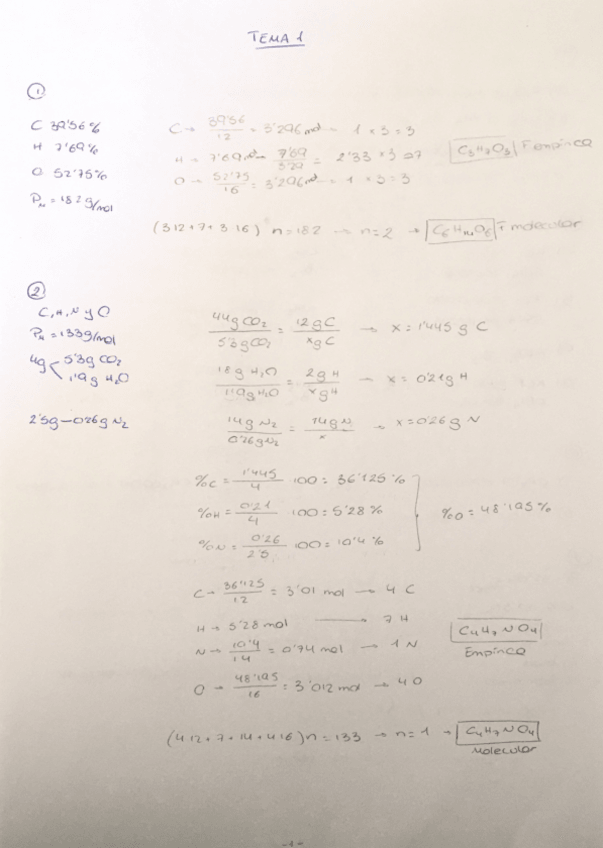 TEMA 1
①
C 39'56%
H 7'69%
O 52'75%
PM = 182 g/mol
C → 39'56/12 = 3'296 mol → 1 × 3 = 3
H → 7'69 mol → 7'69/3'29 = 2'33 × 3 → 7
O → 52'75/16 = 3'296 mol → 1 × 3 = 3
C3H7O3 F empírica
(3·12+7+3·16) n = 182 → n = 2 → C6H14O6 F molecular
②
C, H, N y O
PM = 133 g/mol
4g < 5'3g CO2
1'9g H2O
2'5g — 0'26g N2
44g CO2/5'3g CO2 = 12g C/xg C → x = 1'445 g C
18g H2O/1'9g H2O = 2g H/xg H → x = 0'21g H
14g N2/0'26g N2 = 14g N/x → x = 0'26g N
%C = 1'445/4 · 100 = 36'125%
%H = 0'21/4 · 100 = 5'28%
%N = 0'26/2'5 · 100 = 10'4%
%O = 48'195%
C → 36'125/12 = 3'01 mol → 4 C
H → 5'28 mol → 7 H
N → 10'4/14 = 0'74 mol → 1 N
O → 48'195/16 = 3'012 mol → 4 O
C4H7NO4
Empírica
(4·12+7+14+4·16) n = 133 → n = 1 → C4H7NO4
Molecular
-1-